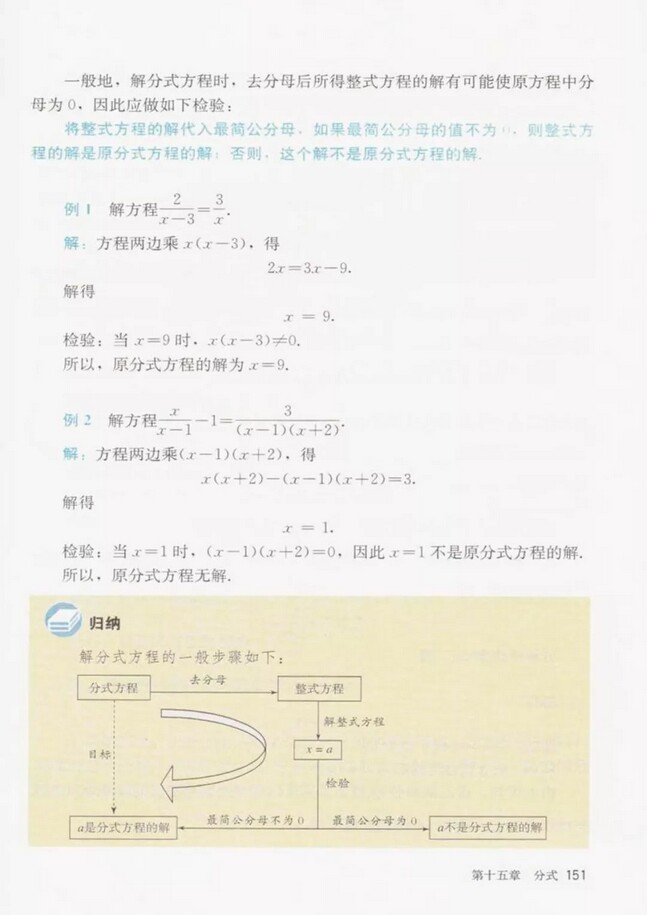 一般地，解分式方程时，去分母后所得整式方程的解有可能使原方程中分
母为 0，因此应做如下检验：
将整式方程的解代入最简公分母，如果最简公分母的值不为 0，则整式方
程的解是原分式方程的解；否则，这个解不是原分式方程的解.
例 1 解方程 2/(x－3)＝3/x.
解：方程两边乘 x(x－3)，得
2x＝3x－9.
解得
x ＝ 9.
检验：当 x＝9 时，x(x－3)≠0.
所以，原分式方程的解为 x＝9.
例 2 解方程 x/(x－1)－1＝3/((x－1)(x＋2)).
解：方程两边乘(x－1)(x＋2)，得
x(x＋2)－(x－1)(x＋2)＝3.
解得
x ＝ 1.
检验：当 x＝1 时，(x－1)(x＋2)＝0，因此 x＝1 不是原分式方程的解.
所以，原分式方程无解.
归纳
解分式方程的一般步骤如下：
分式方程 去分母 整式方程
解整式方程
目标 x＝a
检验
a是分式方程的解 最简公分母不为 0 最简公分母为 0 a不是分式方程的解
第十五章 分式 151